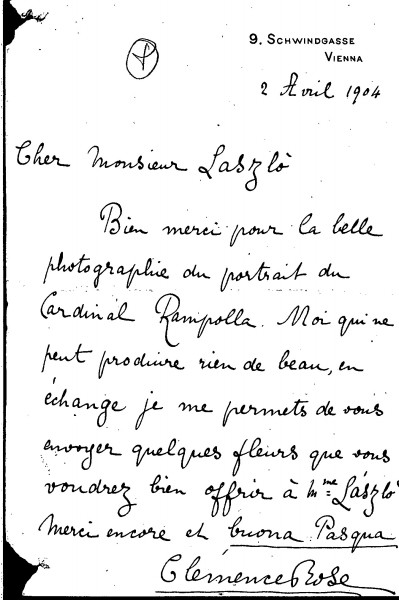 9. SCHWINDGASSE
VIENNA
2 Avril 1904
Cher Monsieur Laszlò
Bien merci pour la belle
photographie du portrait du
Cardinal Rampolla. Moi qui ne
peut produire rien de beau, en
échange je me permets de vous
envoyer quelques fleurs que vous
voudrez bien offrir à Mme László
Merci encore et buona Pasqua
Clémence Rose